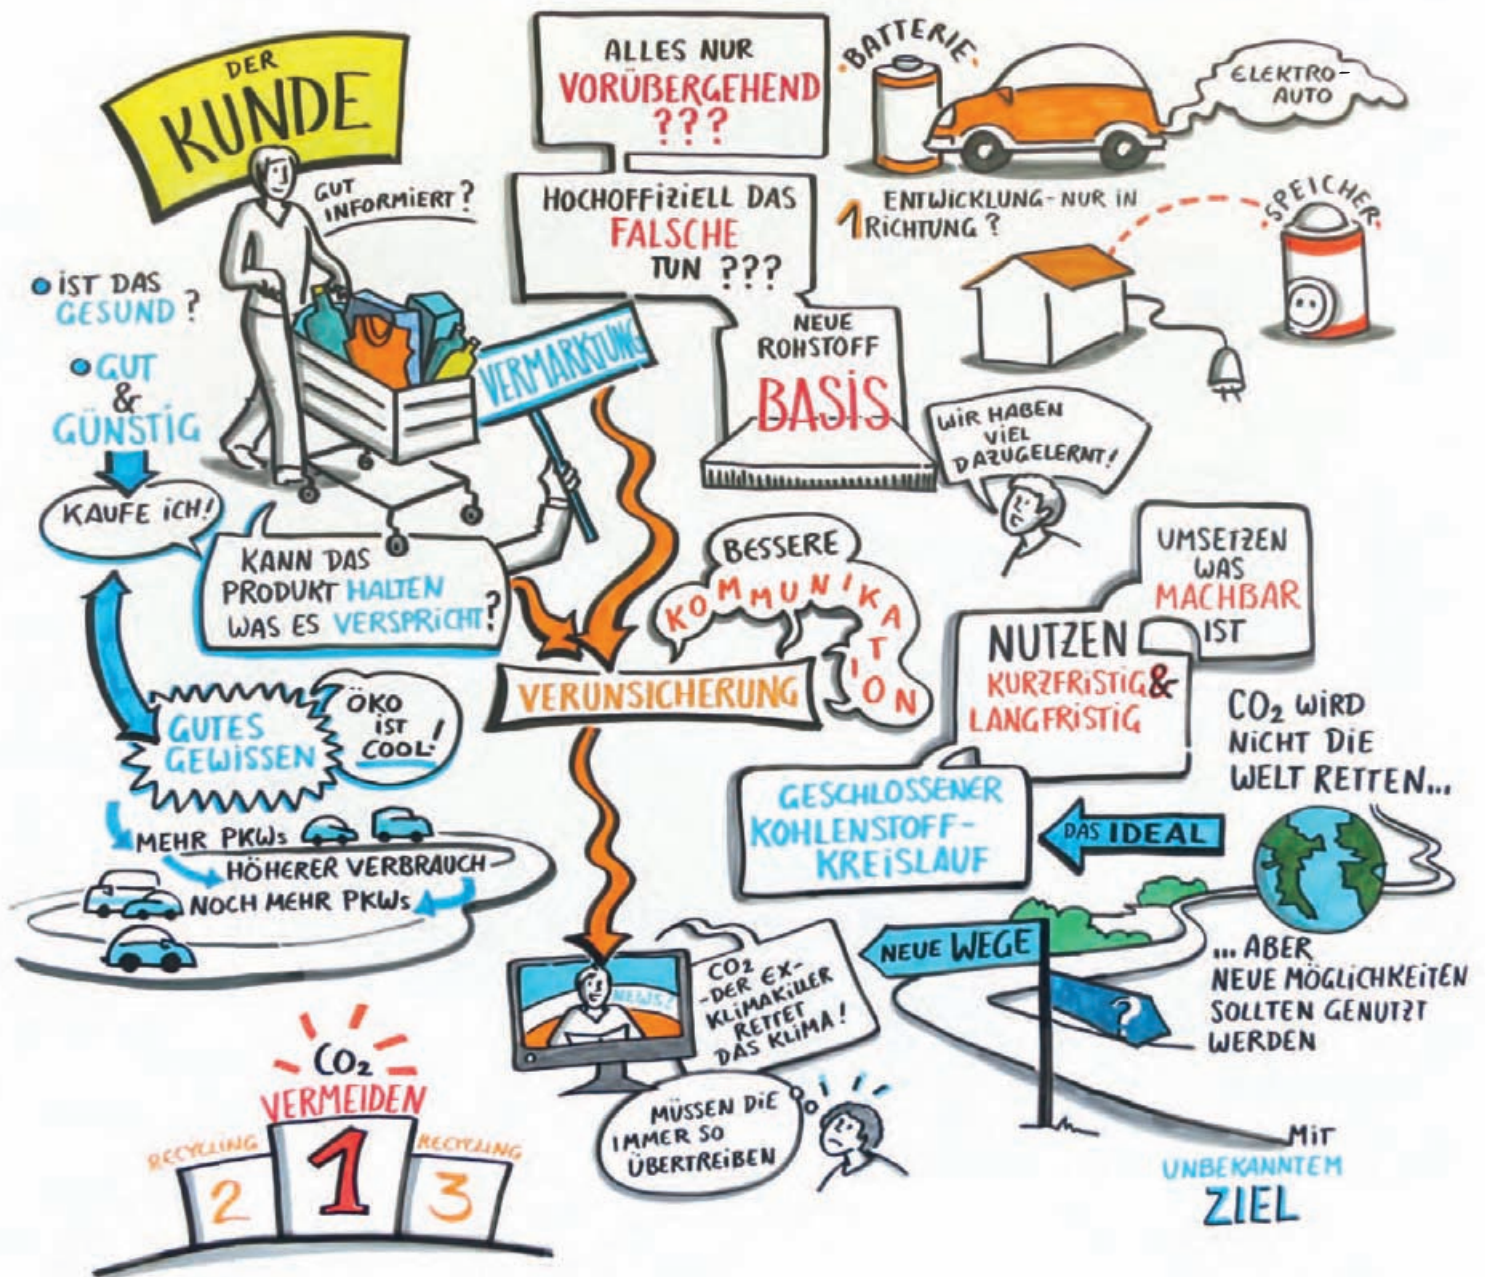 DER
KUNDE
GUT
INFORMIERT?
IST DAS
GESUND?
GUT
&
GÜNSTIG
KAUFE ICH!
KANN DAS
PRODUKT HALTEN
WAS ES VERSPRICHT?
VERMARKTUNG
GUTES
GEWISSEN
ÖKO
IST
COOL!
MEHR PKWs
HÖHERER VERBRAUCH
NOCH MEHR PKWs
ALLES NUR
VORÜBERGEHEND
???
HOCHOFFIZIELL DAS
FALSCHE
TUN ???
NEUE
ROHSTOFF
BASIS
BATTERIE
ELEKTRO-
AUTO
ENTWICKLUNG - NUR IN
1 RICHTUNG?
SPEICHER
WIR HABEN
VIEL
DAZUGELERNT!
BESSERE
KOMMUNIKATION
VERUNSICHERUNG
UMSETZEN
WAS
MACHBAR
IST
NUTZEN
KURZFRISTIG &
LANGFRISTIG
GESCHLOSSENER
KOHLENSTOFF-
KREISLAUF
DAS IDEAL
CO2 WIRD
NICHT DIE
WELT RETTEN...
... ABER
NEUE MÖGLICHKEITEN
SOLLTEN GENUTZT
WERDEN
NEUE WEGE
?
MIT
UNBEKANNTEM
ZIEL
NEWS!
CO2
-DER EX-
KLIMAKILLER
RETTET
DAS KLIMA!
MÜSSEN DIE
IMMER SO
ÜBERTREIBEN
CO2
VERMEIDEN
RECYCLING
RECYCLING
2
1
3